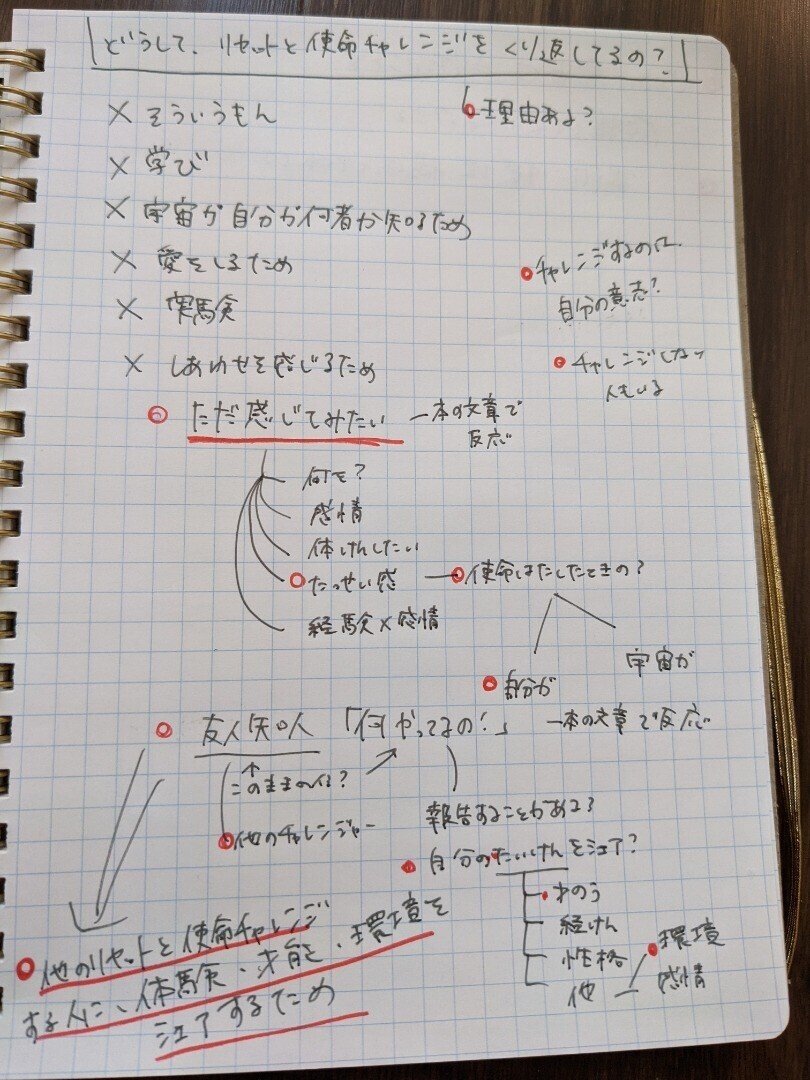 どうして、リセットと使命チャレンジをくり返してるの?
理由ある?
× そういうもん
× 学び
× 宇宙が自分が何者か知るため
× 愛をしるため
× 実験
× しあわせを感じるため
チャレンジするのは、
自分の意志?
チャレンジしない
人もいる
ただ感じてみたい
一本の文章で
反応
何を?
感情
体けんしたい
たっせい感
使命はたしたときの?
経験×感情
自分が
宇宙が
友人知人「何やってるの!」
一本の文章で反応
このままの何?
他のチャレンジャー
報告することがある?
自分のたいけんをシェア?
さのう
経けん
性格
他
環境
感情
他のリセットと使命チャレンジ
する人に、体験・才能・環境を
シェアするため